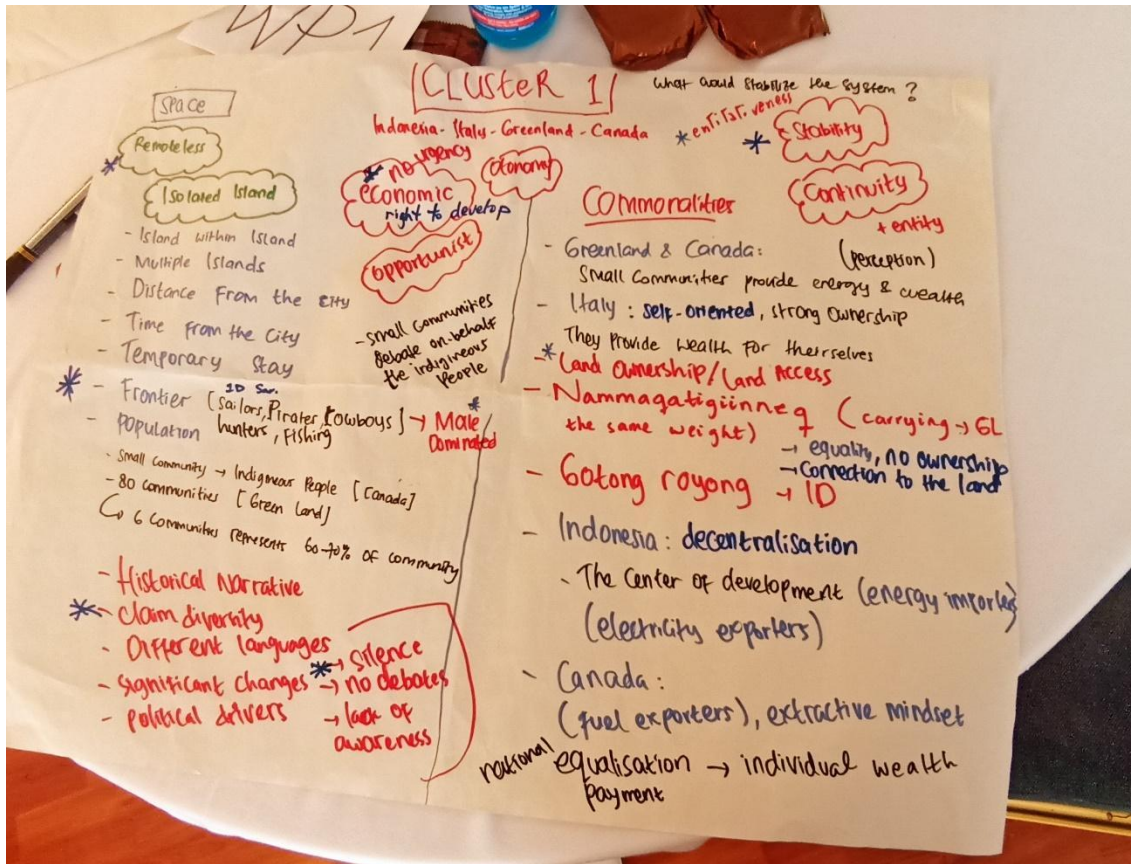 WP1
CLUSTER 1
Indonesia - Italy - Greenland - Canada
What would stabilize the system?
SPACE
Remoteless
Isolated Island
- Island within Island
- Multiple Islands
- Distance From the City
- Time from the City
- Temporary Stay
- Frontier [Sailors, Pirates, Cowboys] → Male Dominated
hunters, Fishing
- population
- Small community → Indigneous People [Canada]
- 80 communities [Green Land]
↳ 6 Communities represents 60-70% of community
- Historical Narrative
- Claim diversity
- Different languages
- Significant changes
- political drivers
→ Silence
→ no debates
→ lack of
awareness
no urgency
economic
right to develop
Otonomy
Opportunist
- Small Communities
debate on-behalf
the indigineous
People
Stability
Continuity
+ entity
Commonalities
- Greenland & Canada:
(perception)
Small Communities provide energy & wealth
- Italy: self-oriented, strong Ownership
They Provide Wealth For theirselves
- Land Ownership/Land Access
- Nammagatigiinneq (carrying → GL
the same weight)
→ equality, no ownership
→ Connection to the land
- Gotong royong → ID
- Indonesia: decentralisation
- The Center of development (energy importers)
(electricity exporters)
- Canada:
(fuel exporters), extractive mindset
national equalisation → individual wealth
payment